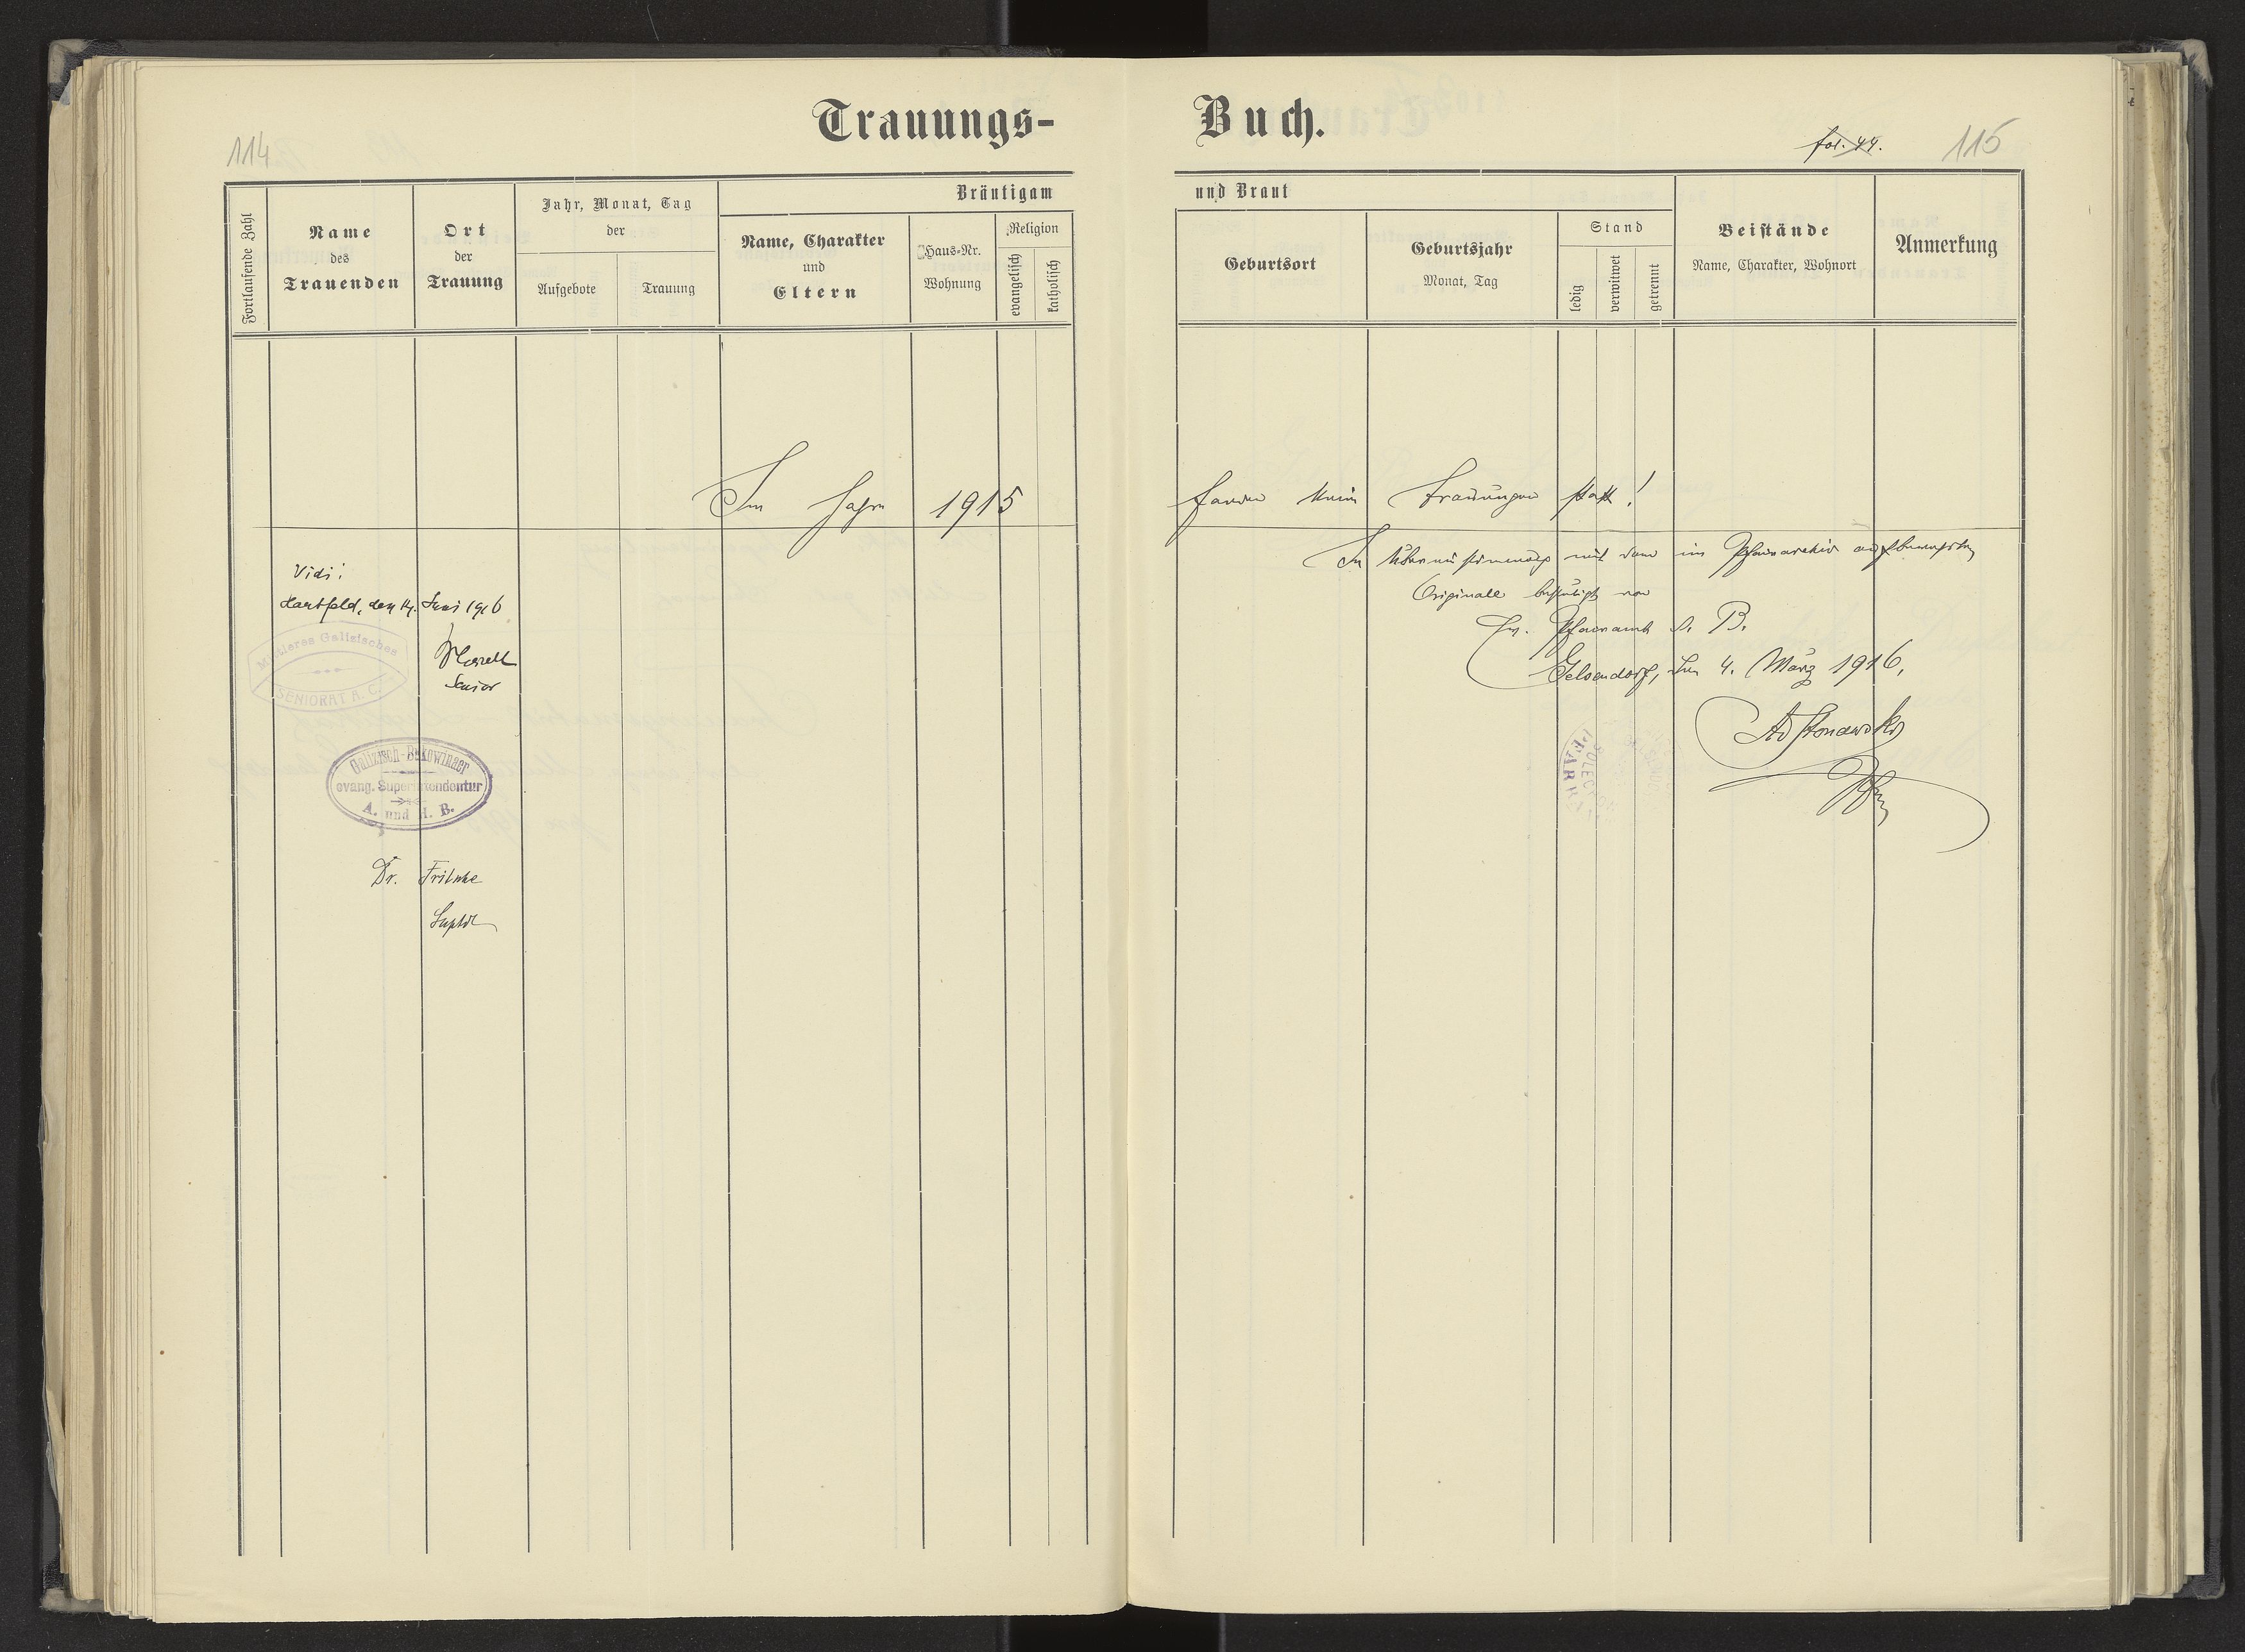 114
Trauungs-
Fortlaufende Zahl
Name
des
Trauenden
Ort
der
Trauung
Jahr, Monat, Tag
der
Aufgebote
Trauung
Bräutigam
Name, Charakter
und
Eltern
Haus-Nr.
Wohnung
Religion
evangelisch
katholisch
Im Jahre 1915
Vidi:
Hartfeld, den 14. Juni 1916
Senior
Mittleres Galizisches
SENIORAT A. C.
Galizisch-Bukowinaer
evang. Superintendentur
A. und H. B.
Dr. Fritsche
Suptdt
Buch.
fol. 44.
115
und Braut
Geburtsort
Geburtsjahr
Monat, Tag
Stand
ledig
verwitwet
getrennt
Beistände
Name, Charakter, Wohnort
Anmerkung
fanden keine Trauungen statt!
In Übereinstimmung mit dem im Pfarrarchiv aufbewahrten
Originale bestätigt vom
Ev. Pfarramt A. B.
Gelsendorf, den 4. März 1916.